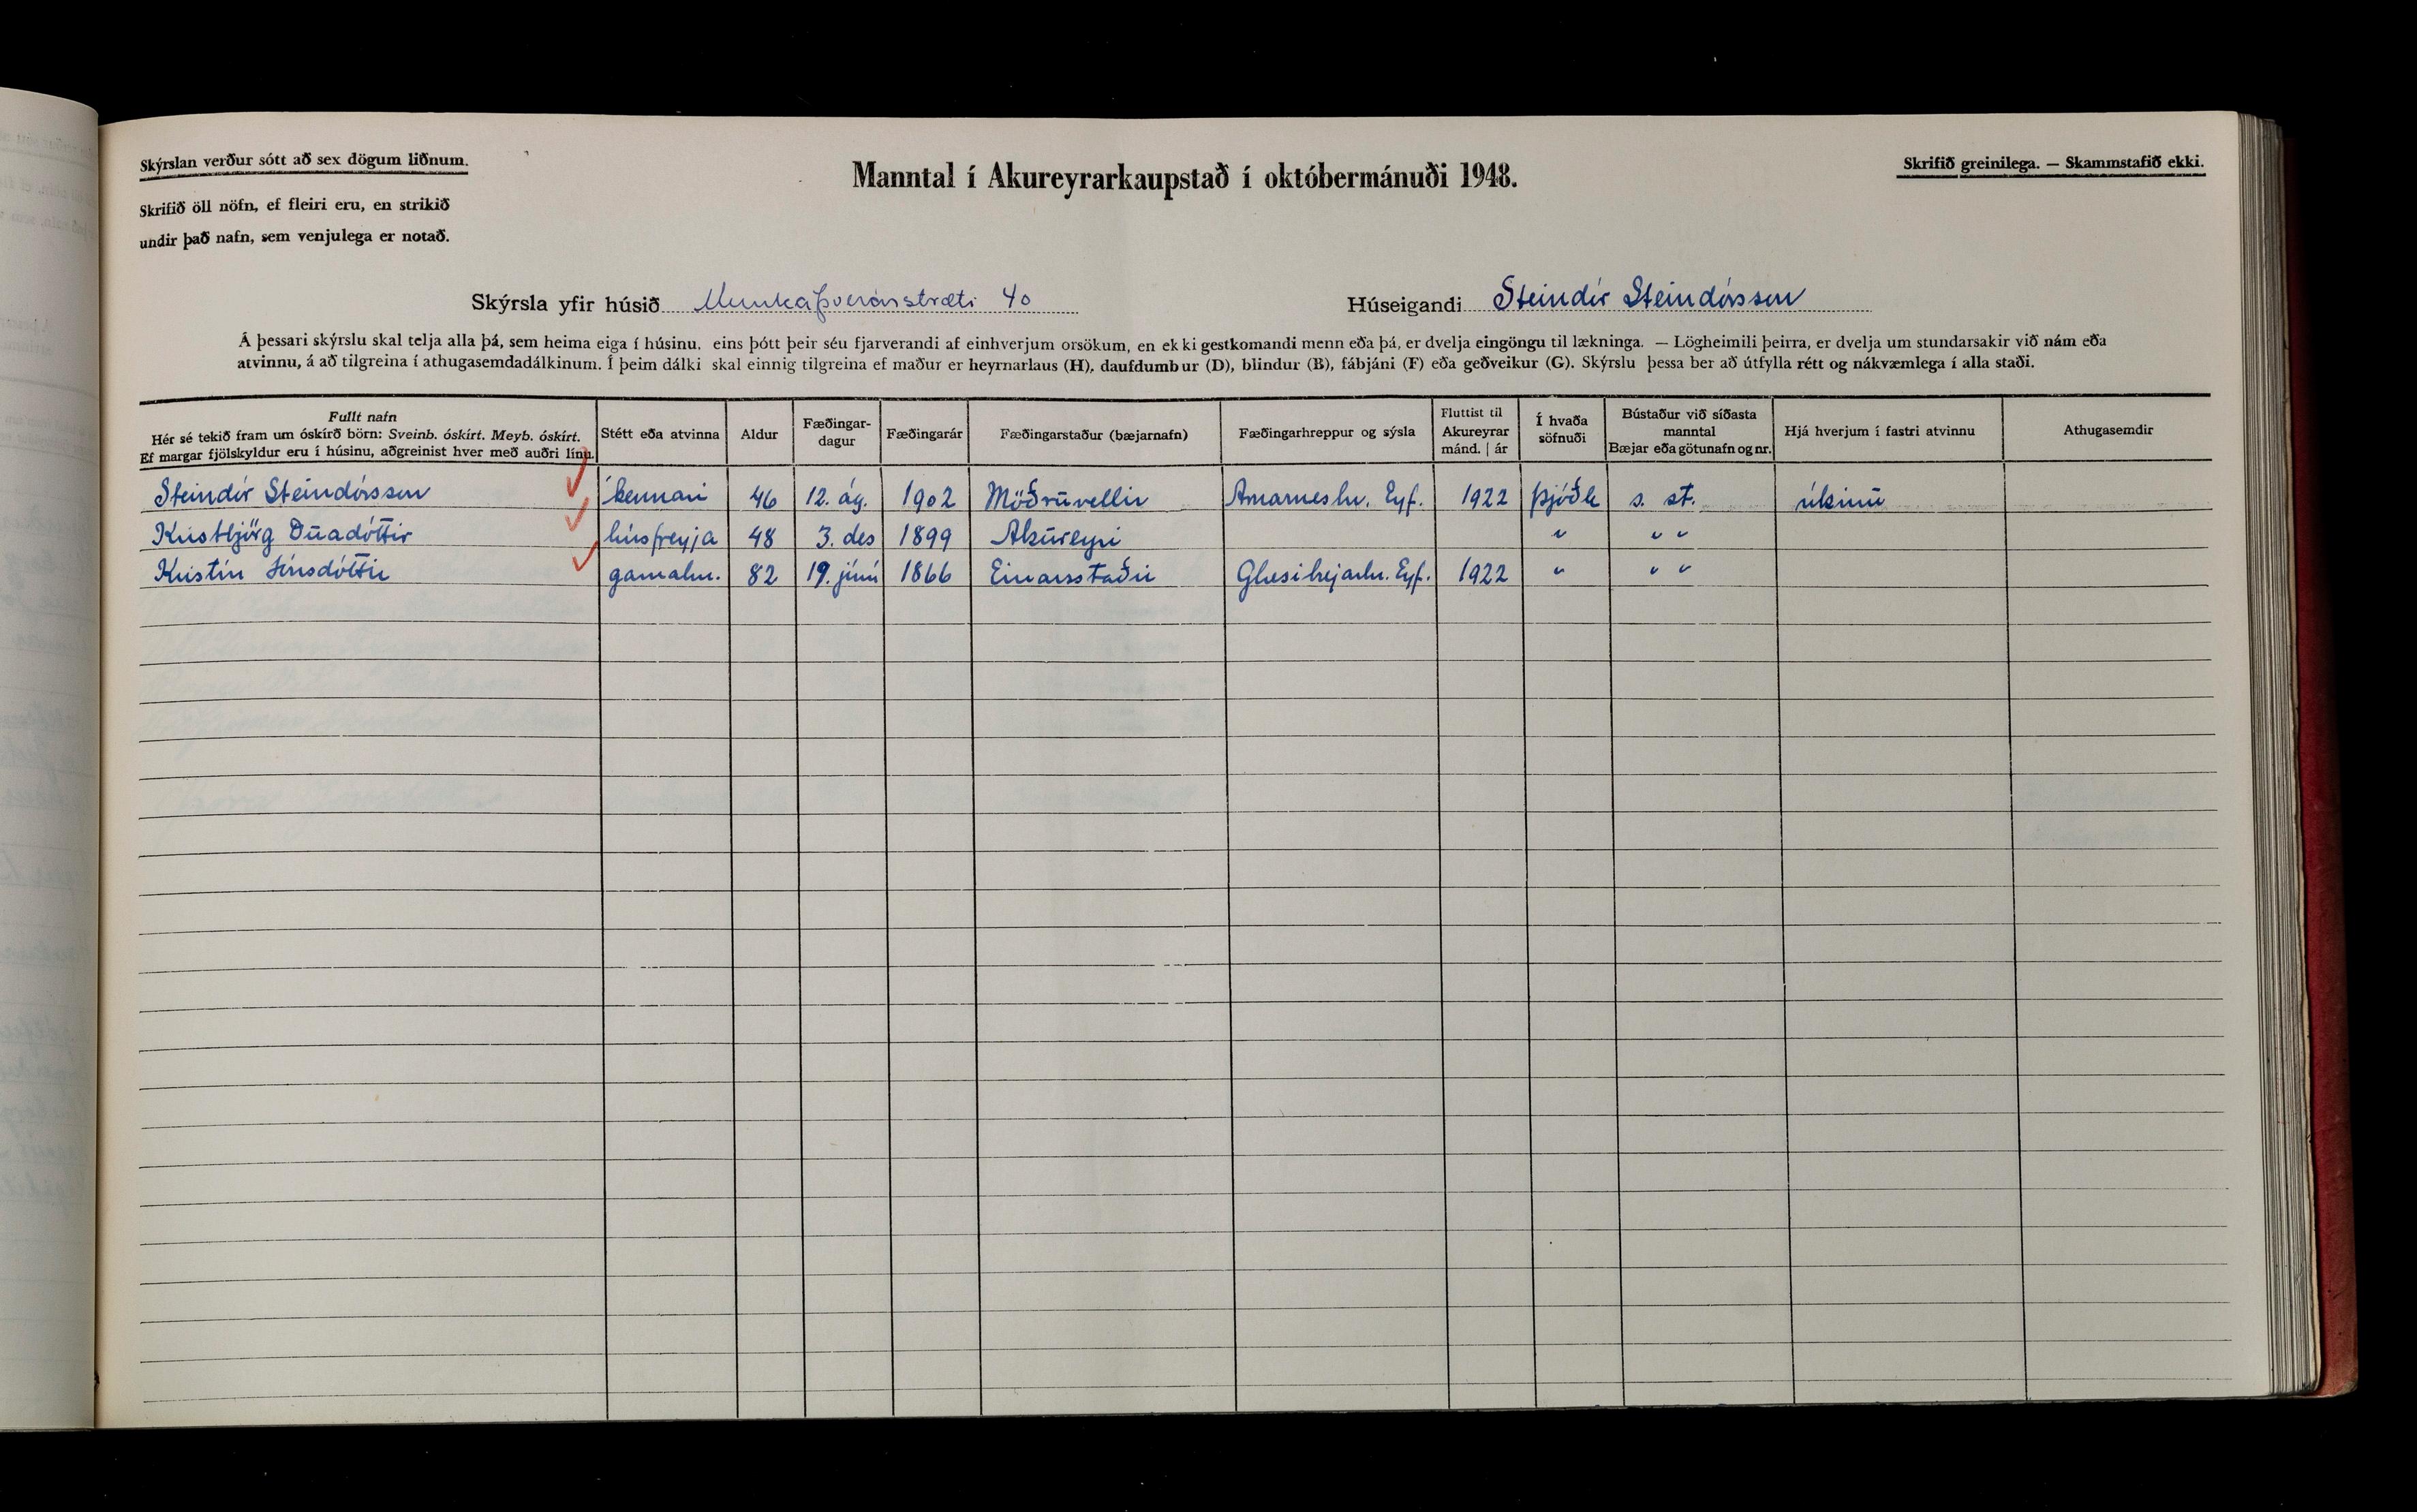 Skýrslan verður sótt að sex dögum liðnum.
Skrifið öll nöfn, ef fleiri eru, en strikið
undir það nafn, sem venjulega er notað.
Manntal í Akureyrarkaupstað í októbermánuði 1948.
Skrifið greinilega. — Skammstafið ekki.
Skýrsla yfir húsið Munkaþverárstræti 40
Húseigandi Steindór Steindórsson
Á þessari skýrslu skal telja alla þá, sem heima eiga í húsinu, eins þótt þeir séu fjarverandi af einhverjum orsökum, en ekki gestkomandi menn eða þá, er dvelja eingöngu til lækninga. — Lögheimili þeirra, er dvelja um stundarsakir við nám eða
atvinnu, á að tilgreina í athugasemdadálkinum. Í þeim dálki skal einnig tilgreina ef maður er heyrnarlaus (H), daufdumbur (D), blindur (B), fábjáni (F) eða geðveikur (G). Skýrslu þessa ber að útfylla rétt og nákvæmlega í alla staði.
Fullt nafn
Hér sé tekið fram um óskírð börn: Sveinb. óskírt. Meyb. óskírt.
Ef margar fjölskyldur eru í húsinu, aðgreinist hver með auðri línu.
Stétt eða atvinna
Aldur
Fæðingar-
dagur
Fæðingarár
Fæðingarstaður (bæjarnafn)
Fæðingarhreppur og sýsla
Fluttist til
Akureyrar
mánd. | ár
Í hvaða
söfnuði
Bústaður við síðasta
manntal
Bæjar eða götunafn og nr.
Hjá hverjum í fastri atvinnu
Athugasemdir
Steindór Steindórsson kennari 46 12. ág. 1902 Möðruvellir Arnarneshr. Eyf. 1922 þjóðk s. st. ríkinu
Kristbjörg Dúadóttir húsfreyja 48 3. des 1899 Akureyri " " "
Kristín Jónsdóttir gamalm. 82 19. júní 1866 Einarsstaðir Glæsibæjarhr. Eyf. 1922 " " "